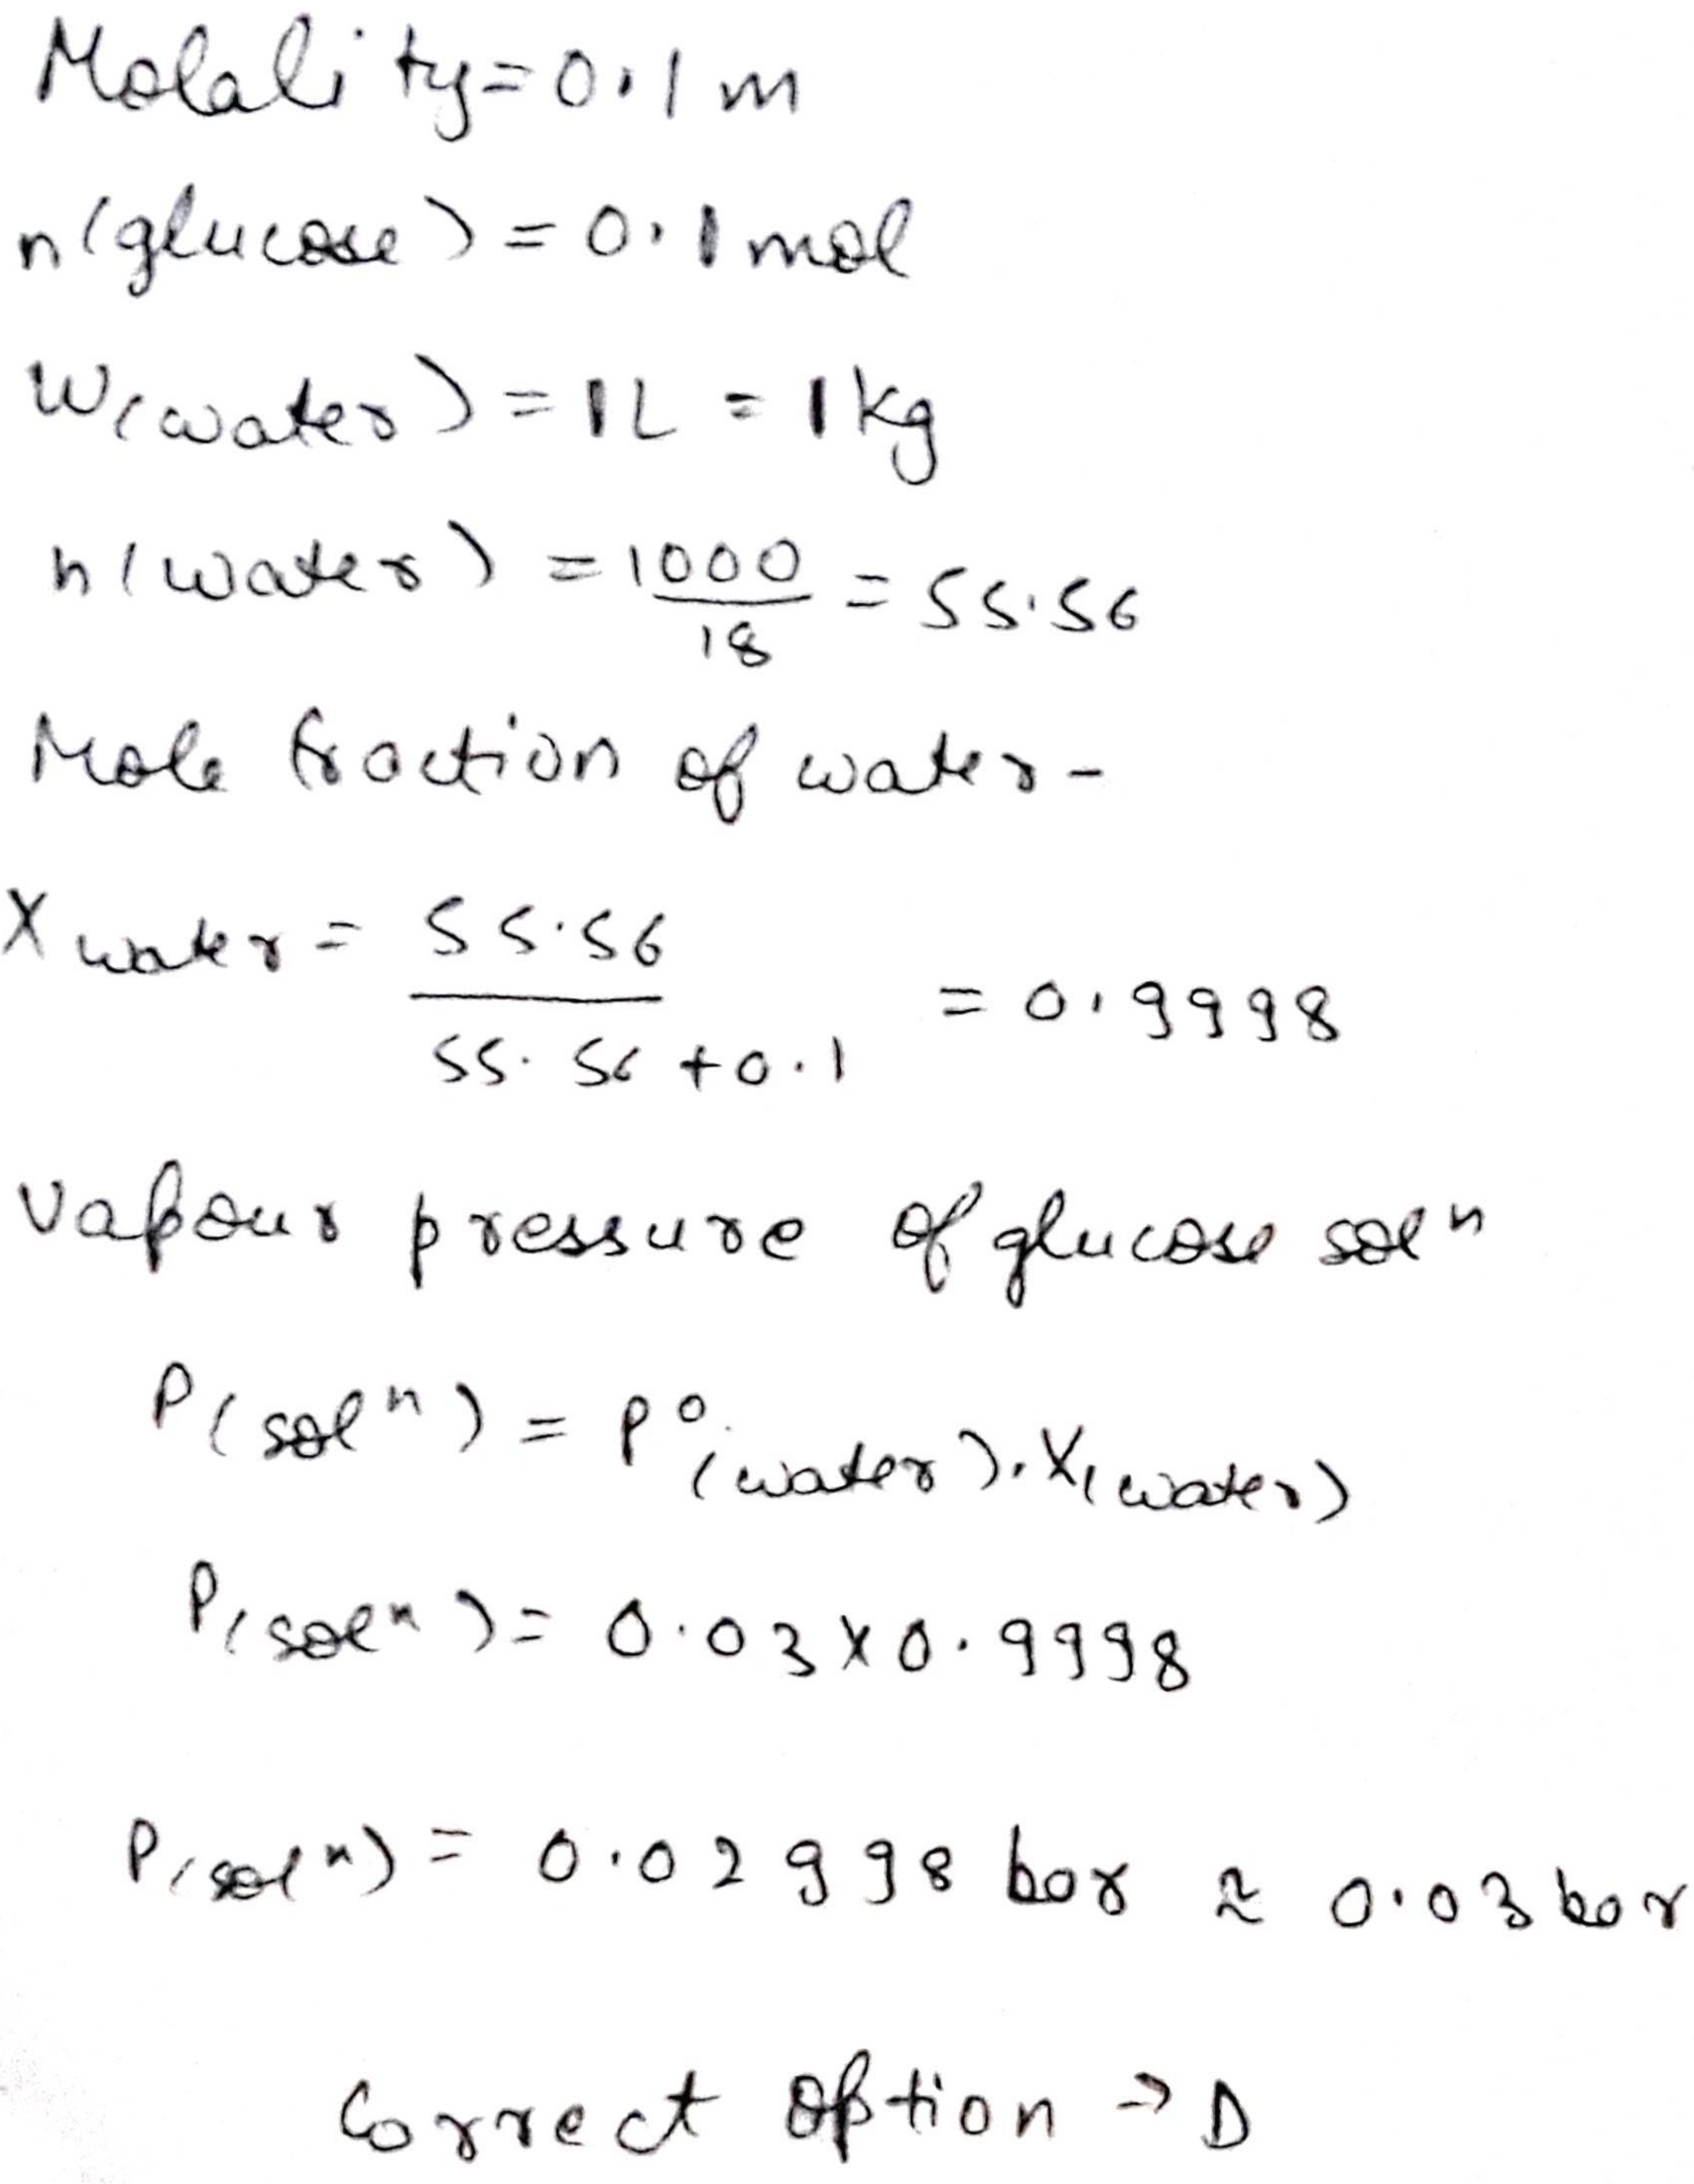 Molality = 0.1 m
n(glucose) = 0.1 mol
W(water) = 1L = 1kg
n(water) = 1000/18 = 55.56
Mole fraction of water -
X water = 55.56/55.56 + 0.1 = 0.9998
Vapour pressure of glucose solⁿ
P(solⁿ) = P⁰(water).X(water)
P(solⁿ) = 0.03 x 0.9998
P(solⁿ) = 0.02998 bar ≈ 0.03 bar
Correct option → D